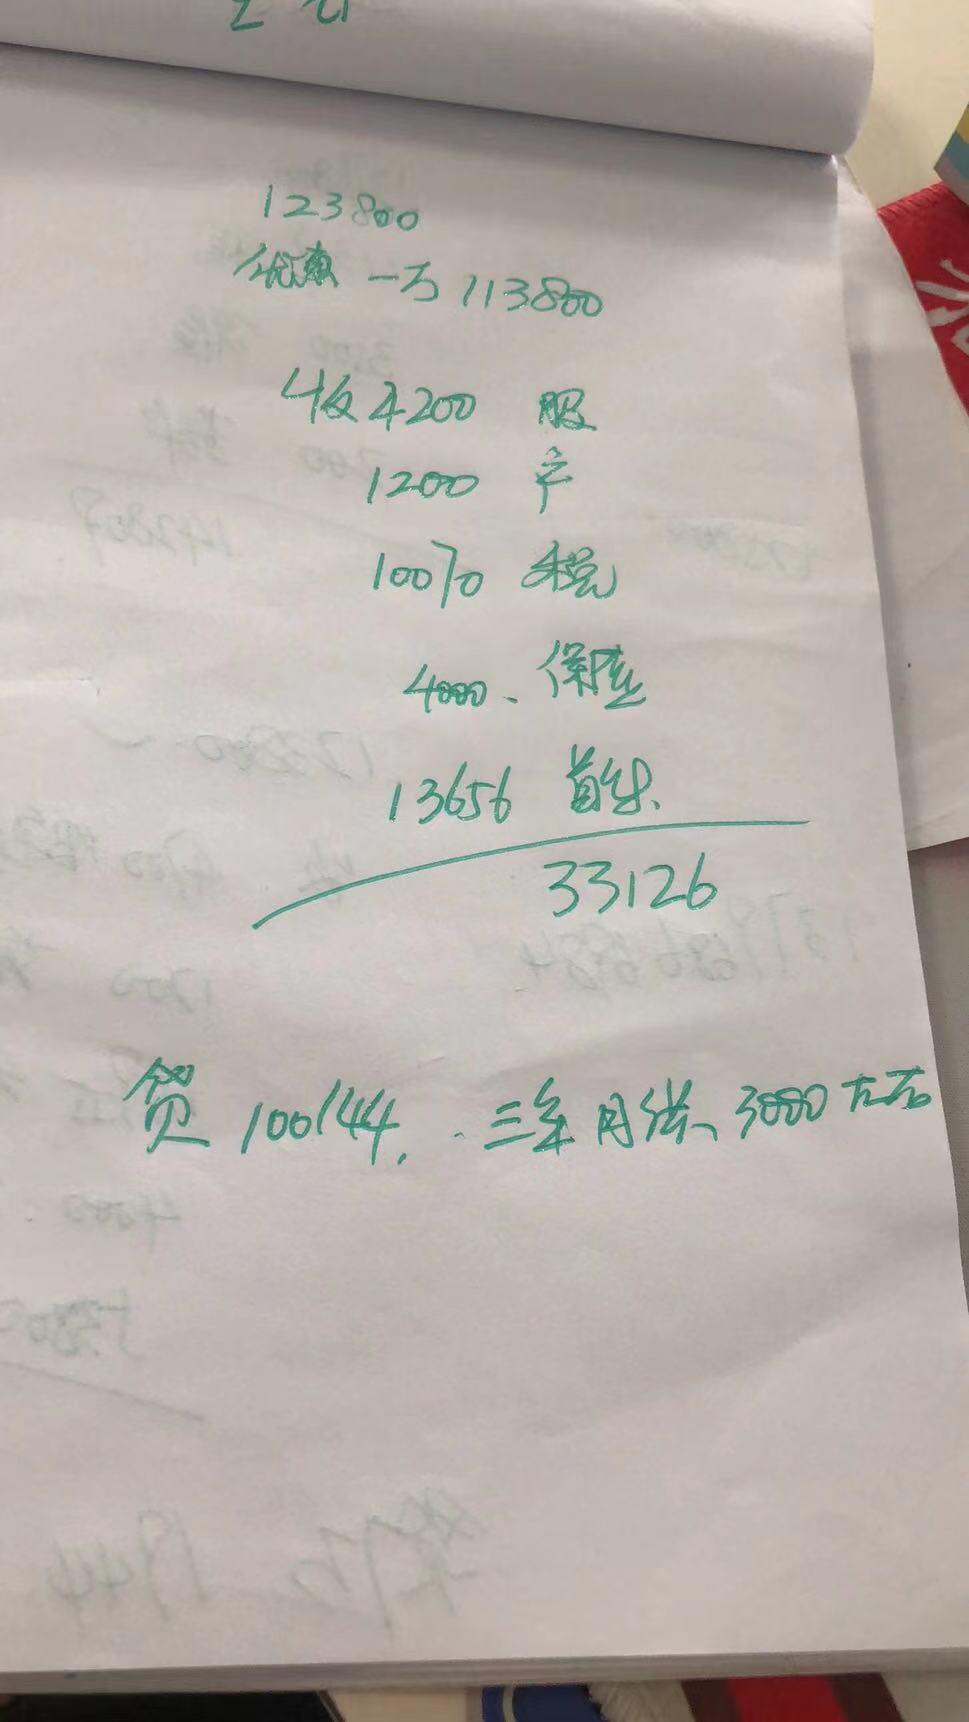 123800
优惠 一万 113800
收 4200 服
1200 产
10070 税
4000、保险
13656 首付、
33126
贷 100144, 三年 月供、3000 左右